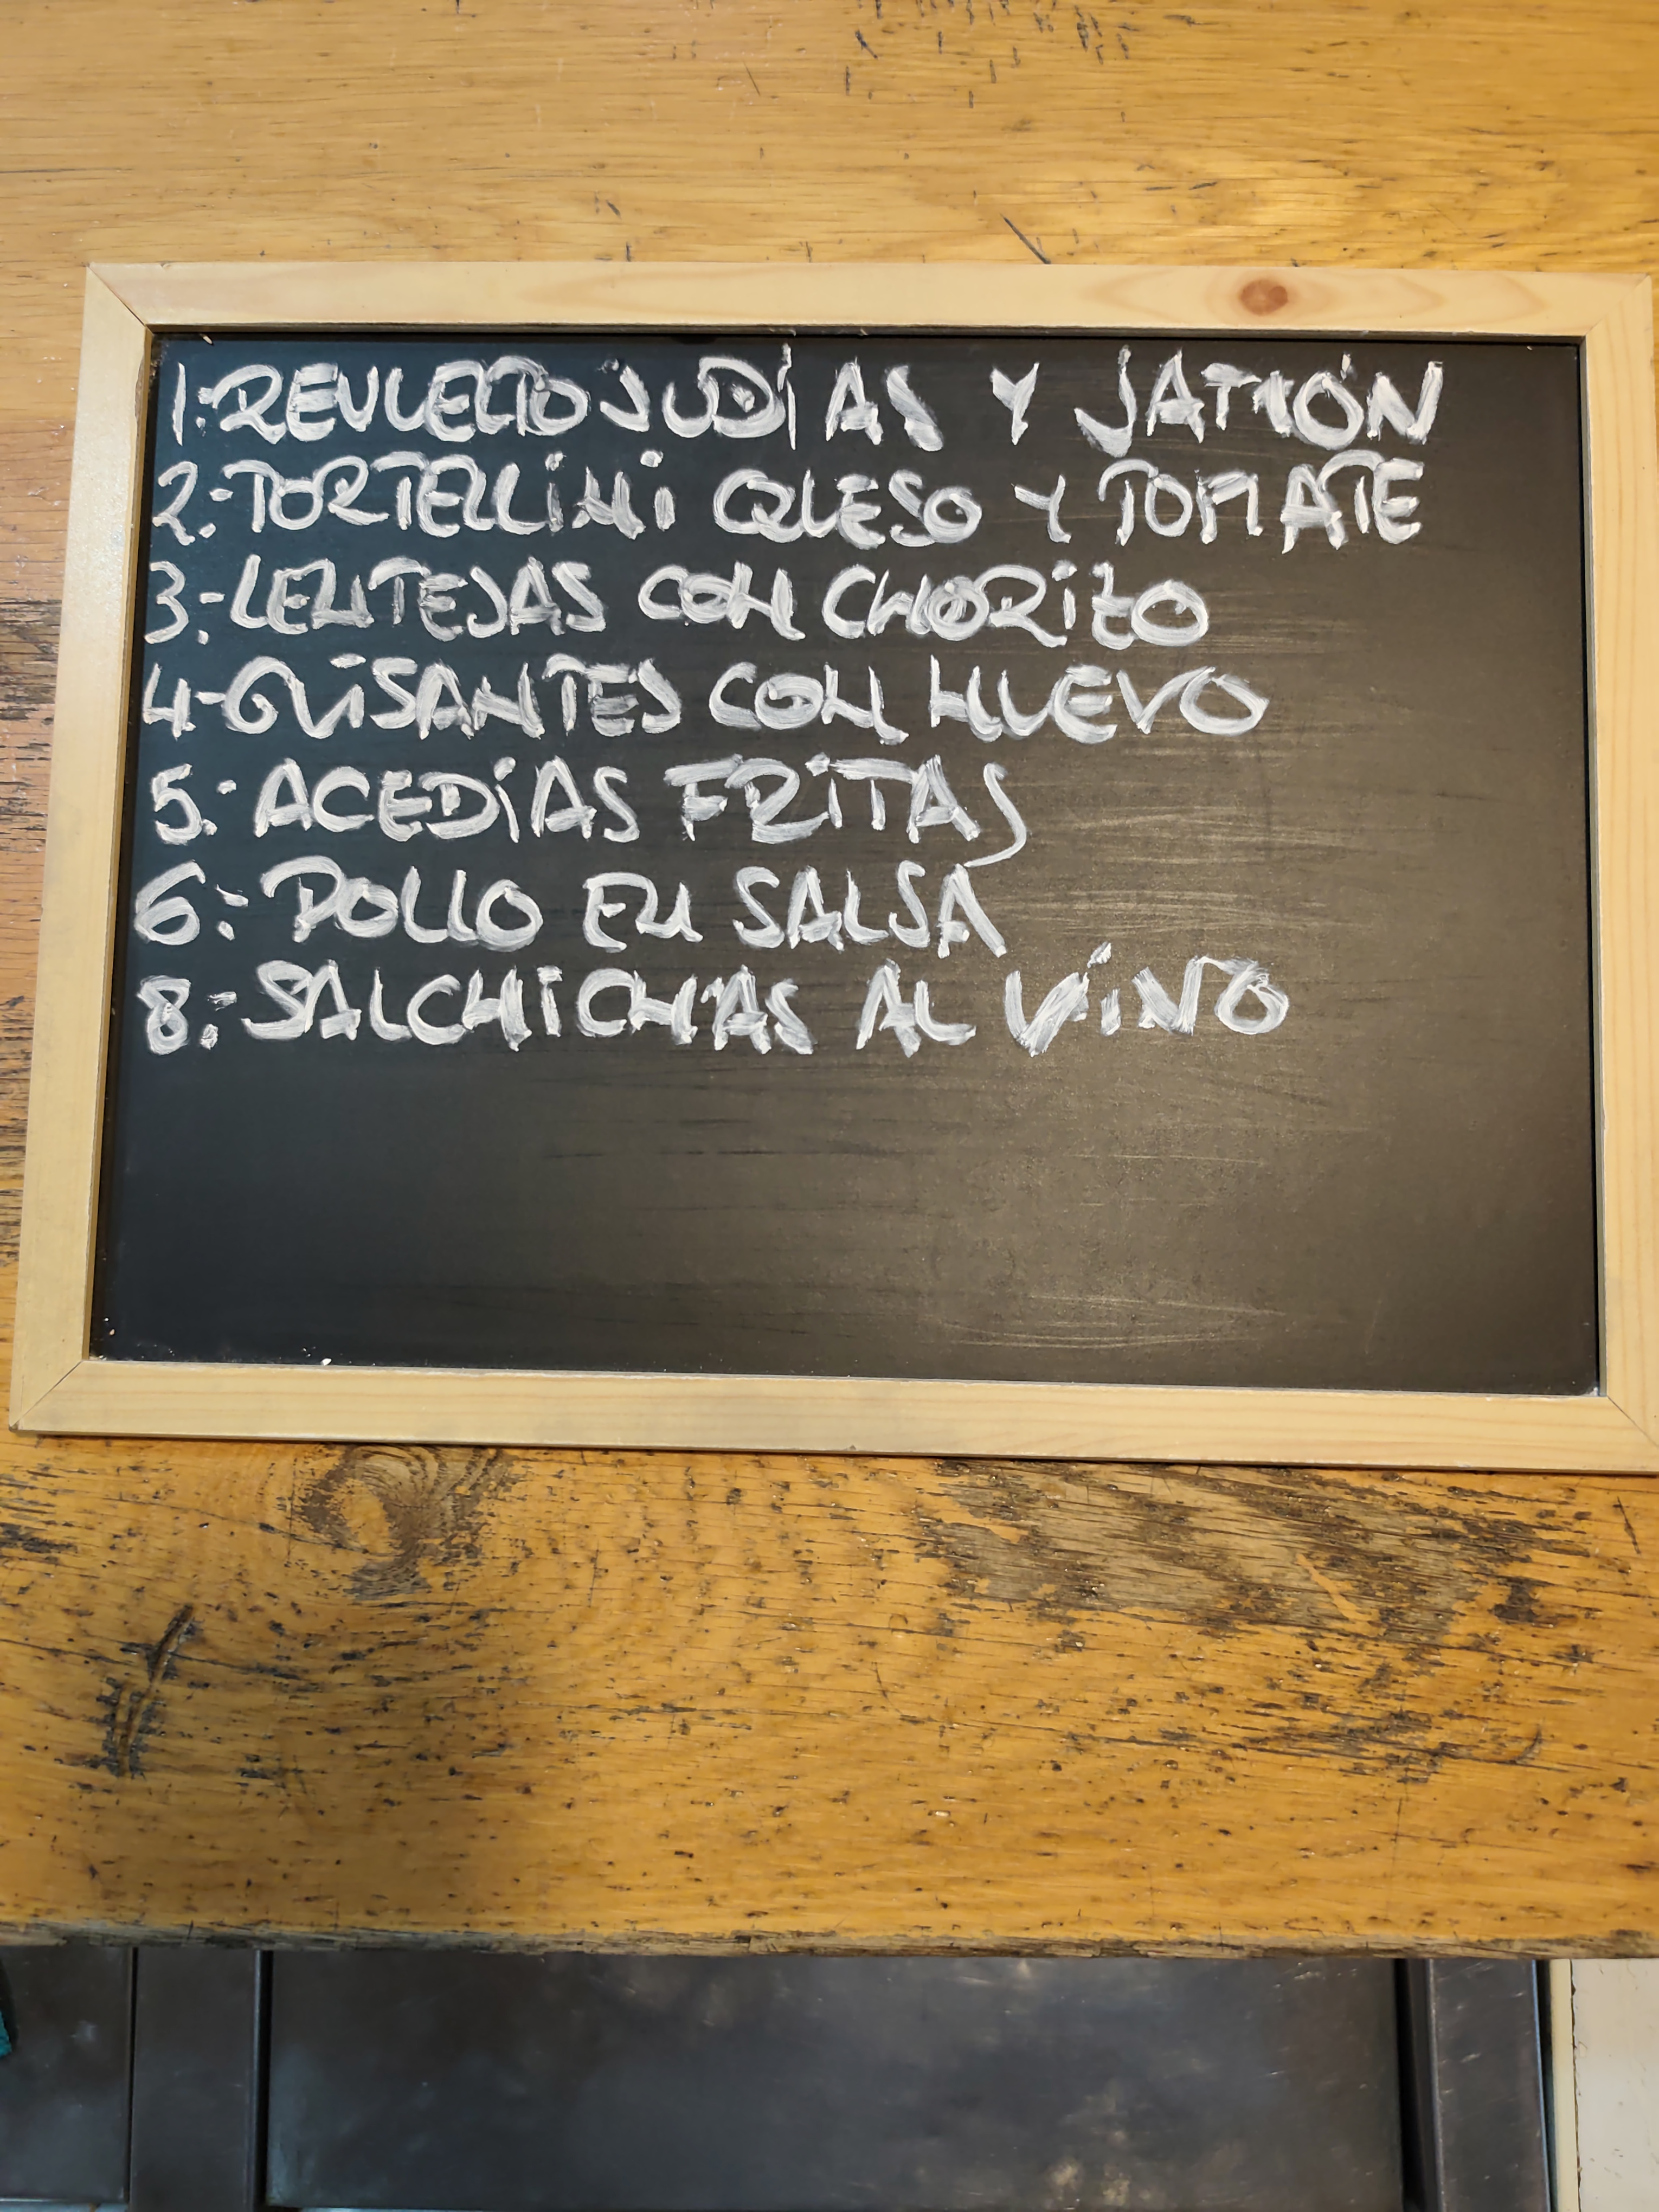 1:-REVUELTO JUDÍAS Y JAMÓN
2:-TORTELLiNi QUESO Y TOMATE
3:-LENTEJAS CON CHORiZO
4-GUiSANTES CON HUEVO
5:- ACEDÍAS FRiTAS
6:- POLLO EN SALSA
8:- SALCHiCHAS AL ViNO